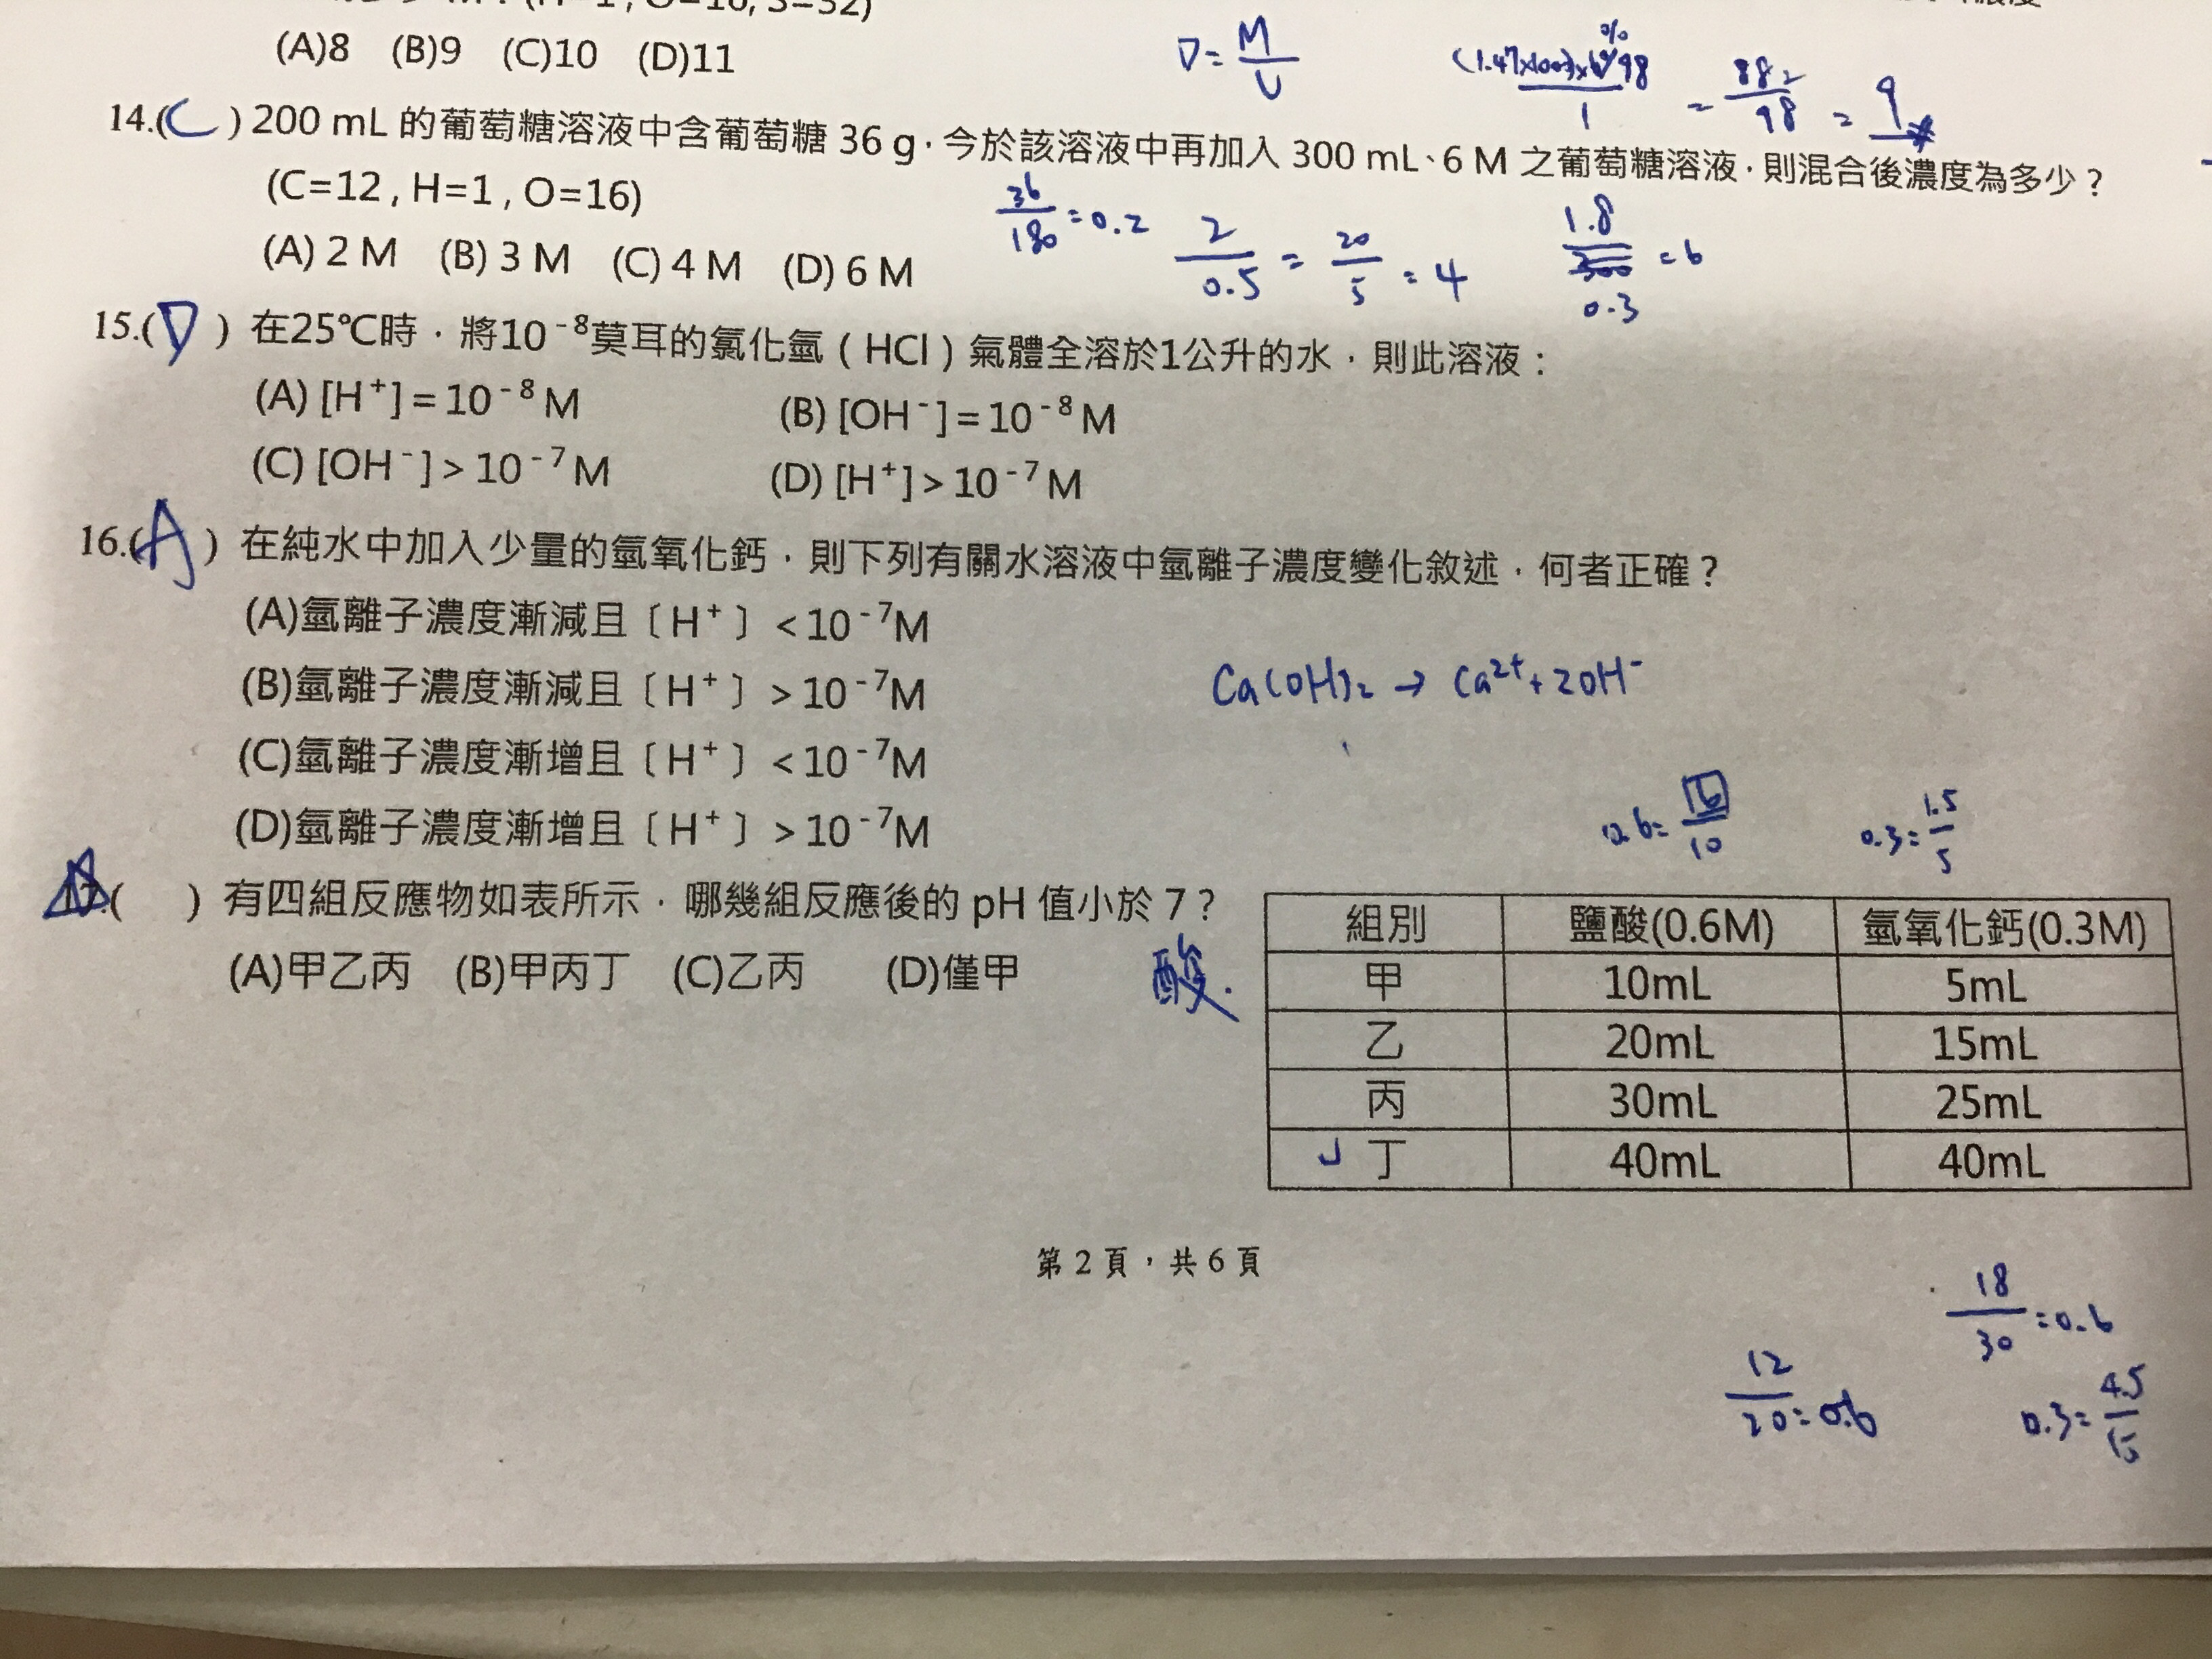 (A)8 (B)9 (C)10 (D)11
D=M/V
(1.47×1000)×
%
98
1
= 882/98 = 9
14.(C) 200 mL 的葡萄糖溶液中含葡萄糖 36 g,今於該溶液中再加入 300 mL、6 M 之葡萄糖溶液,則混合後濃度為多少?
(C=12 , H=1 , O=16)
36/180=0.2
2/0.5 = 20/5 = 4
1.8/0.3 = 6
(A) 2 M (B) 3 M (C) 4 M (D) 6 M
15.(D) 在25℃時,將10⁻⁸莫耳的氯化氫(HCl)氣體全溶於1公升的水,則此溶液:
(A) [H⁺]=10⁻⁸M (B) [OH⁻]=10⁻⁸M
(C) [OH⁻]>10⁻⁷M (D) [H⁺]>10⁻⁷M
16.(A) 在純水中加入少量的氫氧化鈣,則下列有關水溶液中氫離子濃度變化敘述,何者正確?
(A)氫離子濃度漸減且〔H⁺〕<10⁻⁷M
(B)氫離子濃度漸減且〔H⁺〕>10⁻⁷M
Ca(OH)₂→Ca²⁺+2OH⁻
(C)氫離子濃度漸增且〔H⁺〕<10⁻⁷M
(D)氫離子濃度漸增且〔H⁺〕>10⁻⁷M
0.3=1.5/5
17.( ) 有四組反應物如表所示,哪幾組反應後的 pH 值小於 7?
(A)甲乙丙 (B)甲丙丁 (C)乙丙 (D)僅甲
酸.
組別 鹽酸(0.6M) 氫氧化鈣(0.3M)
甲 10mL 5mL
乙 20mL 15mL
丙 30mL 25mL
丁 40mL 40mL
第 2 頁,共 6 頁
18/30=0.6
12/20=0.6
0.3=4.5/15